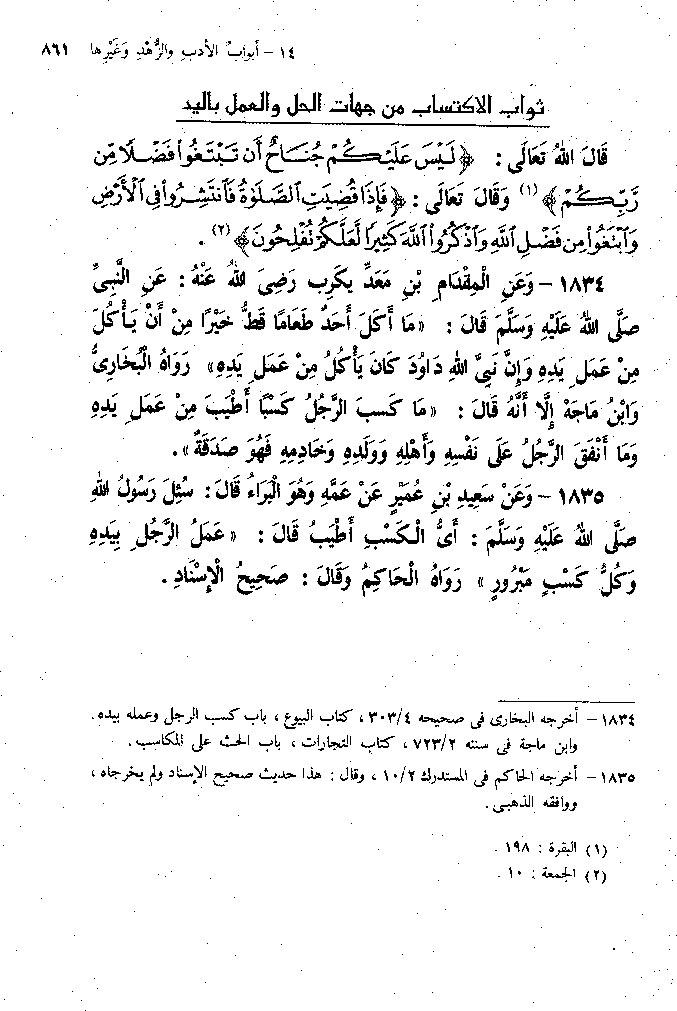 ١٤ – أبواب الأدب والزُّهْدِ وَغَيْرِها ٨٦١
ثواب الاكتساب من جهات الحل والعمل باليد
قَالَ اللهُ تَعَالَى : ﴿ لَيْسَ عَلَيْكُمْ جُنَاحٌ أَن تَبْتَغُوا۟ فَضْلًا مِّن
رَّبِّكُمْ ﴾ (١) وَقَالَ تَعَالَى : ﴿ فَإِذَا قُضِيَتِ ٱلصَّلَوٰةُ فَٱنتَشِرُوا۟ فِي ٱلْأَرْضِ
وَٱبْتَغُوا۟ مِن فَضْلِ ٱللَّهِ وَٱذْكُرُوا۟ ٱللَّهَ كَثِيرًا لَّعَلَّكُمْ تُفْلِحُونَ ﴾ (٢) .
١٨٣٤ – وَعَنِ الْمِقْدَامِ بْنِ مَعَدِّ يكَرِب رَضِىَ اللهُ عَنْهُ : عَنِ النَّبِىِّ
صَلَّى اللهُ عَلَيْهِ وَسَلَّمَ قَالَ : « مَا أَكَلَ أَحَدٌ طَعَامًا قَطُّ خَيْرًا مِنْ أَنْ يَأْكُلَ
مِنْ عَمَلِ يَدِهِ وَإِنَّ نَبِىَّ اللهِ دَاوُدَ كَانَ يَأْكُلُ مِنْ عَمَلِ يَدِهِ » رَوَاهُ الْبُخَارِىُّ
وَابْنُ مَاجَهْ إِلَّا أَنَّهُ قَالَ : « مَا كَسَبَ الرَّجُلُ كَسْبًا أَطْيَبَ مِنْ عَمَلِ يَدِهِ
وَمَا أَنْفَقَ الرَّجُلُ عَلَى نَفْسِهِ وَأَهْلِهِ وَوَلَدِهِ وَخَادِمِهِ فَهُوَ صَدَقَةٌ » .
١٨٣٥ – وَعَنْ سَعِيدِ بْنِ عُمَيْرٍ عَنْ عَمِّهِ وَهُوَ الْبَرَاءُ قَالَ : سُئِلَ رَسُولُ اللهِ
صَلَّى اللهُ عَلَيْهِ وَسَلَّمَ : أَىُّ الْكَسْبِ أَطْيَبُ قَالَ : « عَمَلُ الرَّجُلِ بِيَدِهِ
وَكُلُّ كَسْبٍ مَبْرُورٍ » رَوَاهُ الْحَاكِمُ وَقَالَ : صَحِيحُ الْإِسْنَادِ .
١٨٣٤ – أخرجه البخارى فى صحيحه ٣٠٣/٤ ، كتاب البيوع ، باب كسب الرجل وعمله بيده .
وابن ماجة فى سننه ٧٢٣/٢ ، كتاب التجارات ، باب الحث على المكاسب .
١٨٣٥ – أخرجه الحاكم فى المستدرك ١٠/٢ ، وقال : هذا حديث صحيح الإسناد ولم يخرجاه ،
ووافقه الذهبى .
(١) البقرة : ١٩٨ .
(٢) الجمعة : ١٠ .